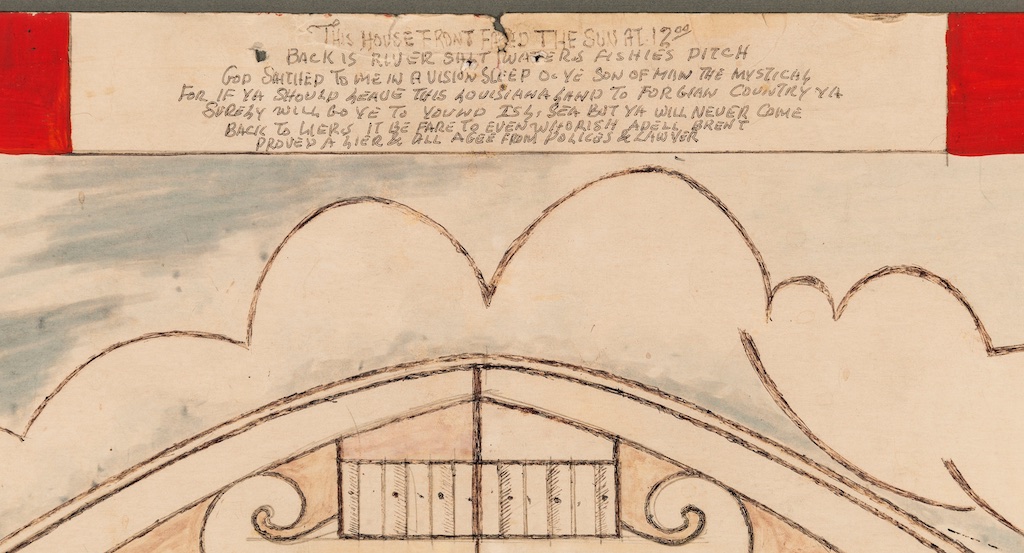 THIS HOUSE FRONT FOUND THE SUN AT 12 00
BACK IS RIVER SALT WATERS FISHIES PITCH
GOD SHITHED TO ME IN A VISION SLEEP O YE SON OF MAN THE MYSTICAL
FOR IF YA SHOULD LEAVE THIS LOUISIANA LAND TO FORGIAN COUNTRY YA
SURELY WILL GO YE TO YOUND ISL, SEA BUT YA WILL NEVER COME
BACK TO LIERS IT BE FARE TO EVEN WHORISH ADELL BRENT
PROVED A LIER & ALL AGEE FROM POLICES & LAWYER